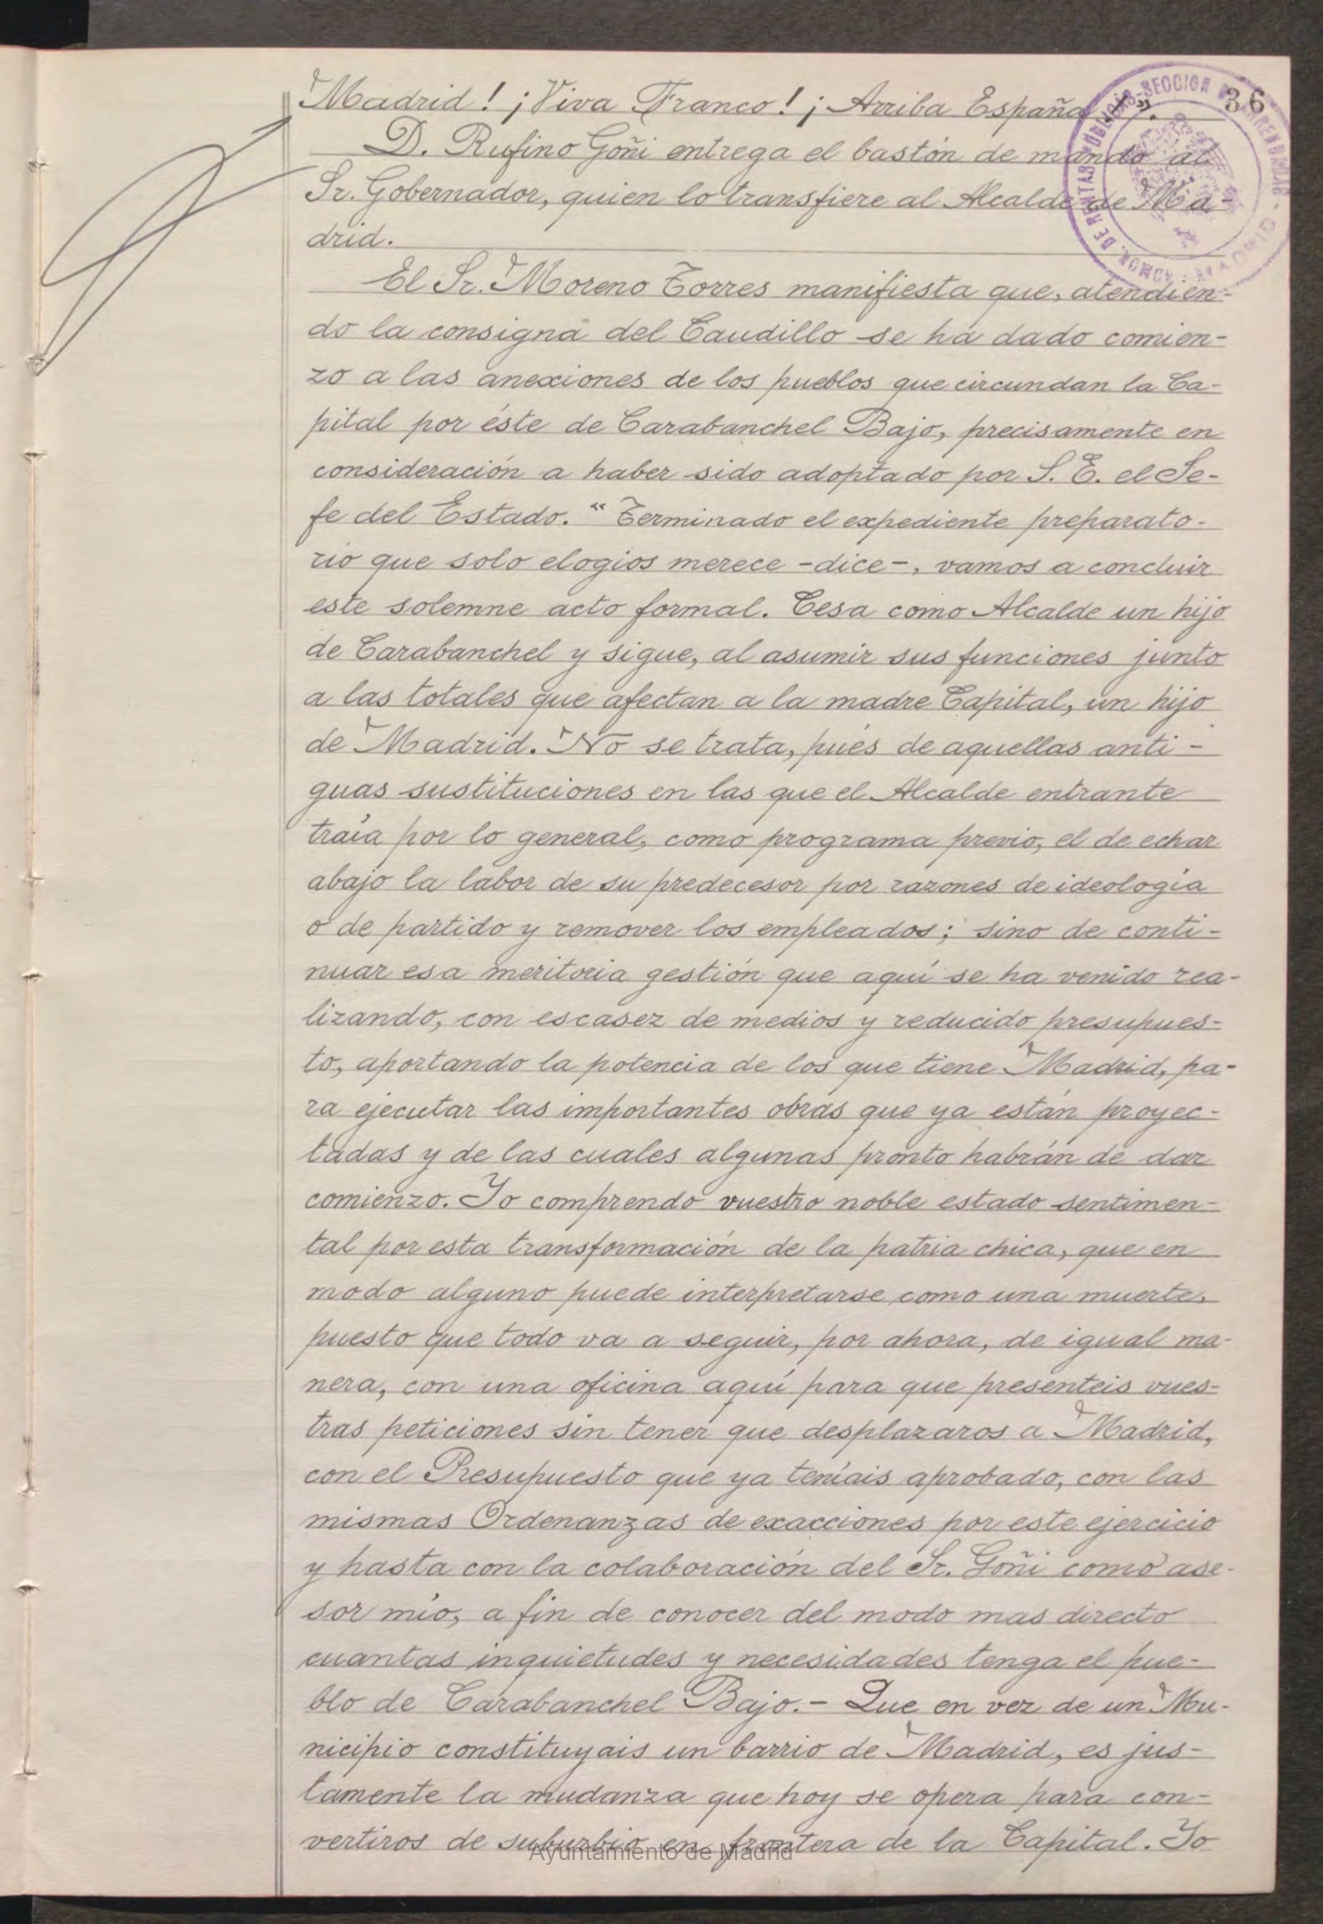 36
Madrid! ¡Viva Franco! ¡Arriba España!".
D. Rufino Goñi entrega el bastón de mando al
Sr. Gobernador, quien lo transfiere al Alcalde de Ma-
drid.
El Sr. Moreno Torres manifiesta que, atendien-
do la consigna del Caudillo se ha dado comien-
zo a las anexiones de los pueblos que circundan la Ca-
pital por éste de Carabanchel Bajo, precisamente en
consideración a haber sido adoptado por S. E. el Je-
fe del Estado. "Terminado el expediente preparato-
rio que solo elogios merece -dice-, vamos a concluir
este solemne acto formal. Cesa como Alcalde un hijo
de Carabanchel y sigue, al asumir sus funciones junto
a las totales que afectan a la madre Capital, un hijo
de Madrid. No se trata, pués de aquellas anti-
guas sustituciones en las que el Alcalde entrante
traía por lo general, como programa previo, el de echar
abajo la labor de su predecesor por razones de ideología
o de partido y remover los empleados; sino de conti-
nuar esa meritoria gestión que aquí se ha venido rea-
lizando, con escasez de medios y reducido presupues-
to, aportando la potencia de los que tiene Madrid, pa-
ra ejecutar las importantes obras que ya están proyec-
tadas y de las cuales algunas pronto habrán de dar
comienzo. Yo comprendo vuestro noble estado sentimen-
tal por esta transformación de la patria chica, que en
modo alguno puede interpretarse como una muerte,
puesto que todo va a seguir, por ahora, de igual ma-
nera, con una oficina aquí para que presenteis vues-
tras peticiones sin tener que desplazaros a Madrid,
con el Presupuesto que ya teníais aprobado, con las
mismas Ordenanzas de exacciones por este ejercicio
y hasta con la colaboración del Sr. Goñi como ase-
sor mío, a fin de conocer del modo mas directo
cuantas inquietudes y necesidades tenga el pue-
blo de Carabanchel Bajo.- Que en vez de un Mu-
nicipio constituyais un barrio de Madrid, es jus-
tamente la mudanza que hoy se opera para con-
vertiros de suburbio en frontera de la Capital. Yo
Ayuntamiento de Madrid